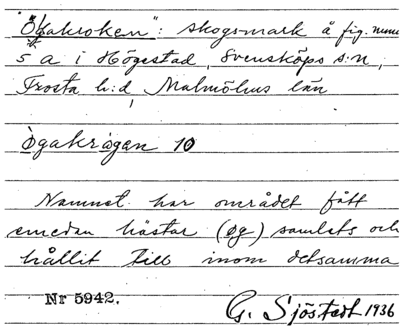 "Ögakroken": skogsmark å fig. num
5 a i Högestad, Svensköps s:n,
Frosta h:d, Malmöhus län
ògakrògan 10
Namnet har området fått
emedan hästar (øg) samlats och
hållit till inom detsamma
Nr 5942.
G. Sjöstedt 1936